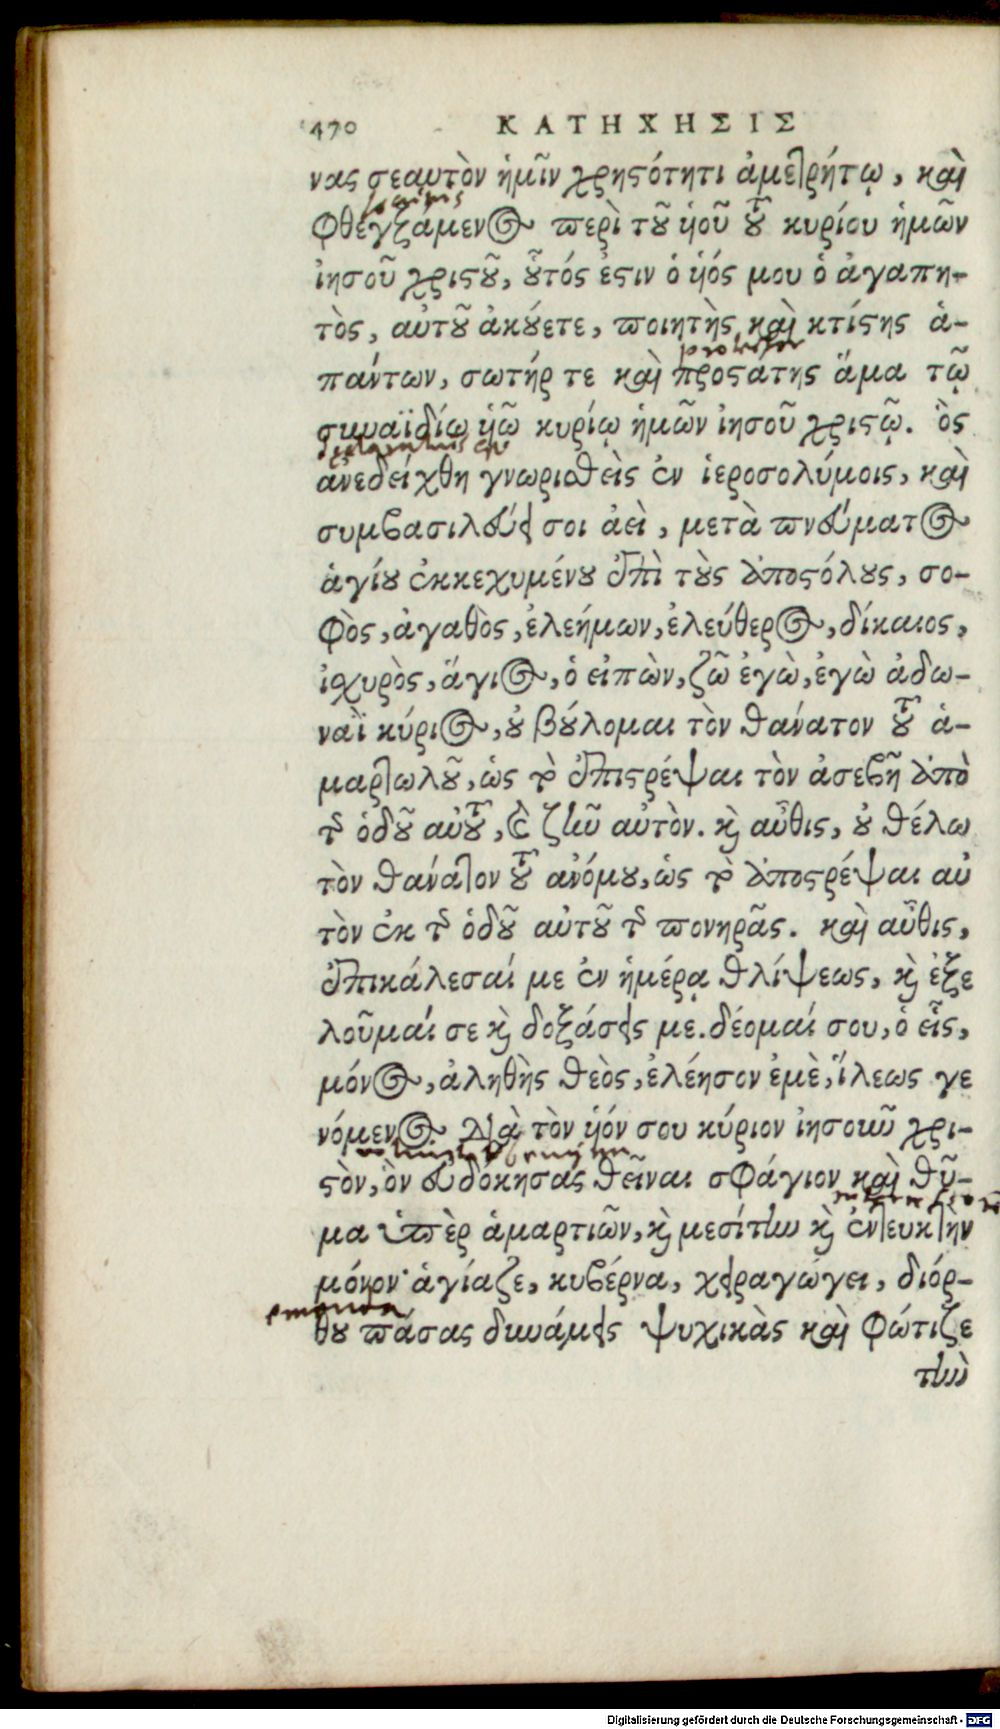 470 ΚΑΤΗΧΗΣΙΣ
νας σεαυτὸν ἡμῖν χρηστότητι ἀμετρήτῳ, καὶ
φθεγξάμενος περὶ τοῦ ὑοῦ τοῦ κυρίου ἡμῶν
ἰησοῦ χριστοῦ, οὗτός ἐστιν ὁ ὑός μου ὁ ἀγαπη-
τὸς, αὐτοῦ ἀκούετε, ποιητὴς καὶ κτίστης ἁ-
πάντων, σωτήρ τε καὶ προστάτης ἅμα τῷ
συναϊδίῳ ὑῷ κυρίῳ ἡμῶν ἰησοῦ χριστῷ. ὃς
ἀνεδείχθη γνωρισθεὶς ἐν ἱεροσολύμοις, καὶ
συμβασιλεύει σοι ἀεὶ, μετὰ πνεύματος
ἁγίου ἐκκεχυμένου ἐπὶ τοὺς ἀποστόλους, σο-
φὸς, ἀγαθὸς, ἐλεήμων, ἐλεύθερος, δίκαιος,
ἰσχυρὸς, ἅγιος, ὁ εἰπὼν, ζῶ ἐγὼ, ἐγὼ ἀδω-
ναῒ κύριος, οὐ βούλομαι τὸν θάνατον τοῦ ἁ-
μαρτωλοῦ, ὡς τὸ ἐπιστρέψαι τὸν ἀσεβῆ ἀπὸ
τῆς ὁδοῦ αὐτοῦ, καὶ ζῆν αὐτόν. καὶ αὖθις, οὐ θέλω
τὸν θάνατον τοῦ ἀνόμου, ὡς τὸ ἀποστρέψαι αὐ
τὸν ἐκ τῆς ὁδοῦ αὐτοῦ τῆς πονηρᾶς. καὶ αὖθις,
ἐπικάλεσαί με ἐν ἡμέρᾳ θλίψεως, καὶ ἐξε
λοῦμαί σε καὶ δοξάσεις με. δέομαί σου, ὁ εἷς,
μόνος, ἀληθὴς θεὸς, ἐλέησον ἐμὲ, ἵλεως γε
νόμενος διὰ τὸν ὑόν σου κύριον ἰησοῦν χρι-
στὸν, ὃν εὐδόκησας θεῖναι σφάγιον καὶ θῦ-
μα ὑπὲρ ἁμαρτιῶν, καὶ μεσίτην καὶ ἐντευκτὴν
μόνον· ἁγίαζε, κυβέρνα, χειραγώγει, διόρ-
θου πάσας δυνάμεις ψυχικὰς καὶ φώτιζε
τὴν
Digitalisierung gefördert durch die Deutsche Forschungsgemeinschaft - DFG